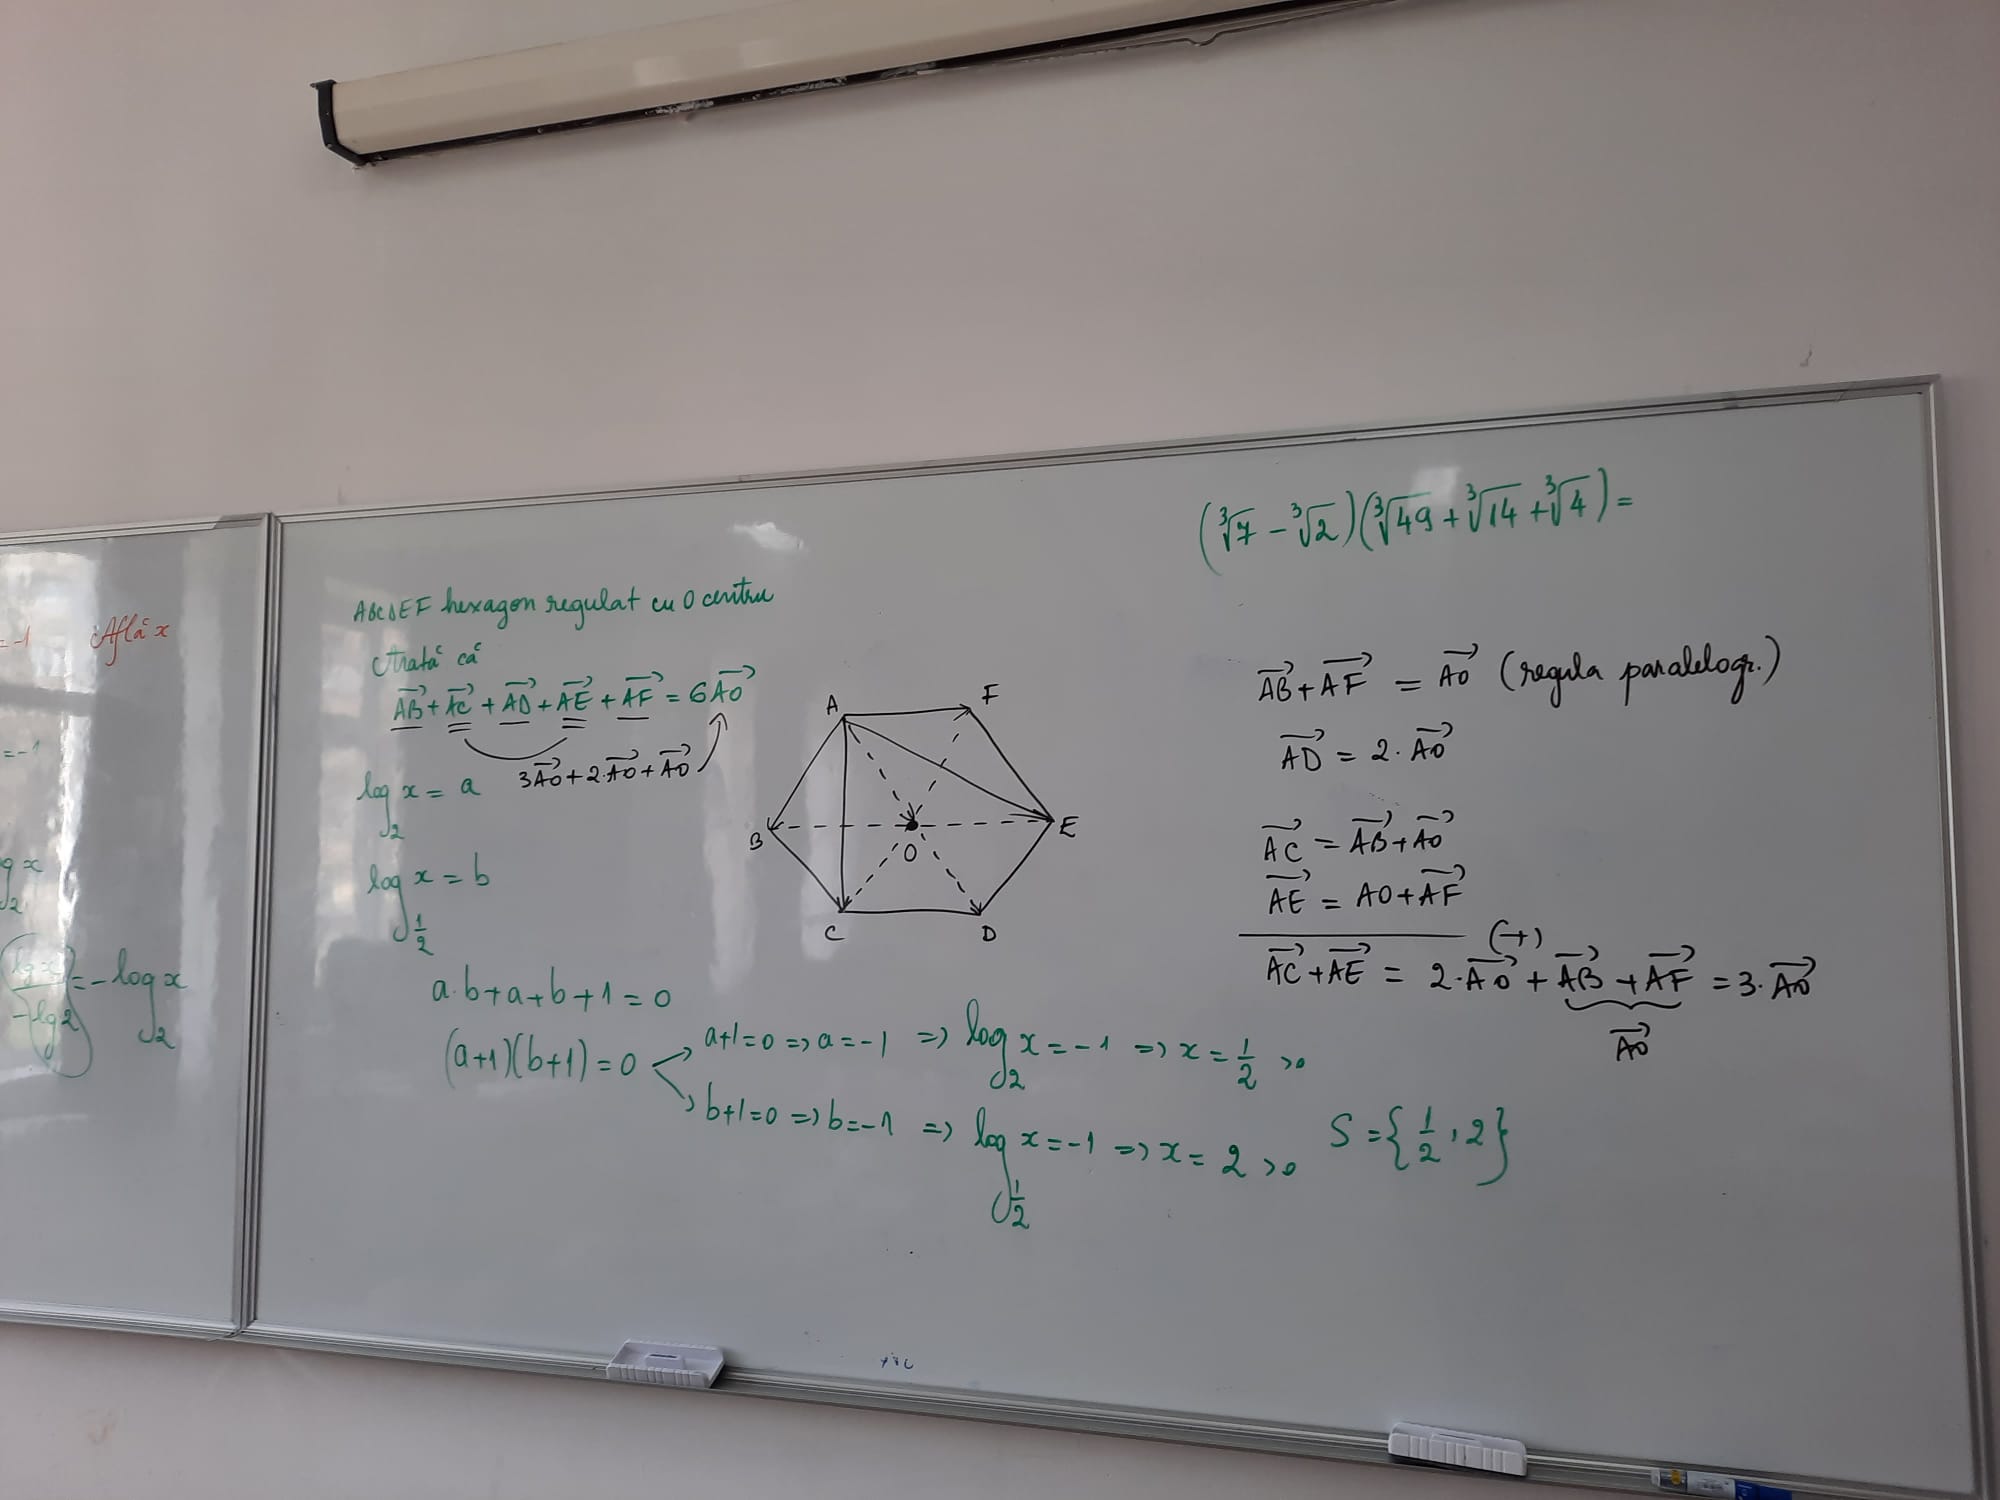 = -1 Află x
= -1
g x
2
lg x / -lg 2 = - log₂ x
ABCDEF hexagon regulat cu O centru
Arată că
AB⃗ + AC⃗ + AD⃗ + AE⃗ + AF⃗ = 6AO⃗
3AO⃗ + 2·AO⃗ + AO⃗
log₂ x = a
log_{1/2} x = b
a·b + a + b + 1 = 0
(a+1)(b+1) = 0
a+1=0 => a = -1 => log₂ x = -1 => x = 1/2 >0
b+1=0 => b = -1 => log_{1/2} x = -1 => x = 2 >0
S = {1/2, 2}
A
F
B
O
E
C
D
(∛7 - ∛2)(∛49 + ∛14 + ∛4) =
AB⃗ + AF⃗ = AO⃗ (regula paralelogr.)
AD⃗ = 2·AO⃗
AC⃗ = AB⃗ + AO⃗
AE⃗ = AO + AF⃗
(+)
AC⃗ + AE⃗ = 2·AO⃗ + AB⃗ + AF⃗ = 3·AO⃗
AO⃗